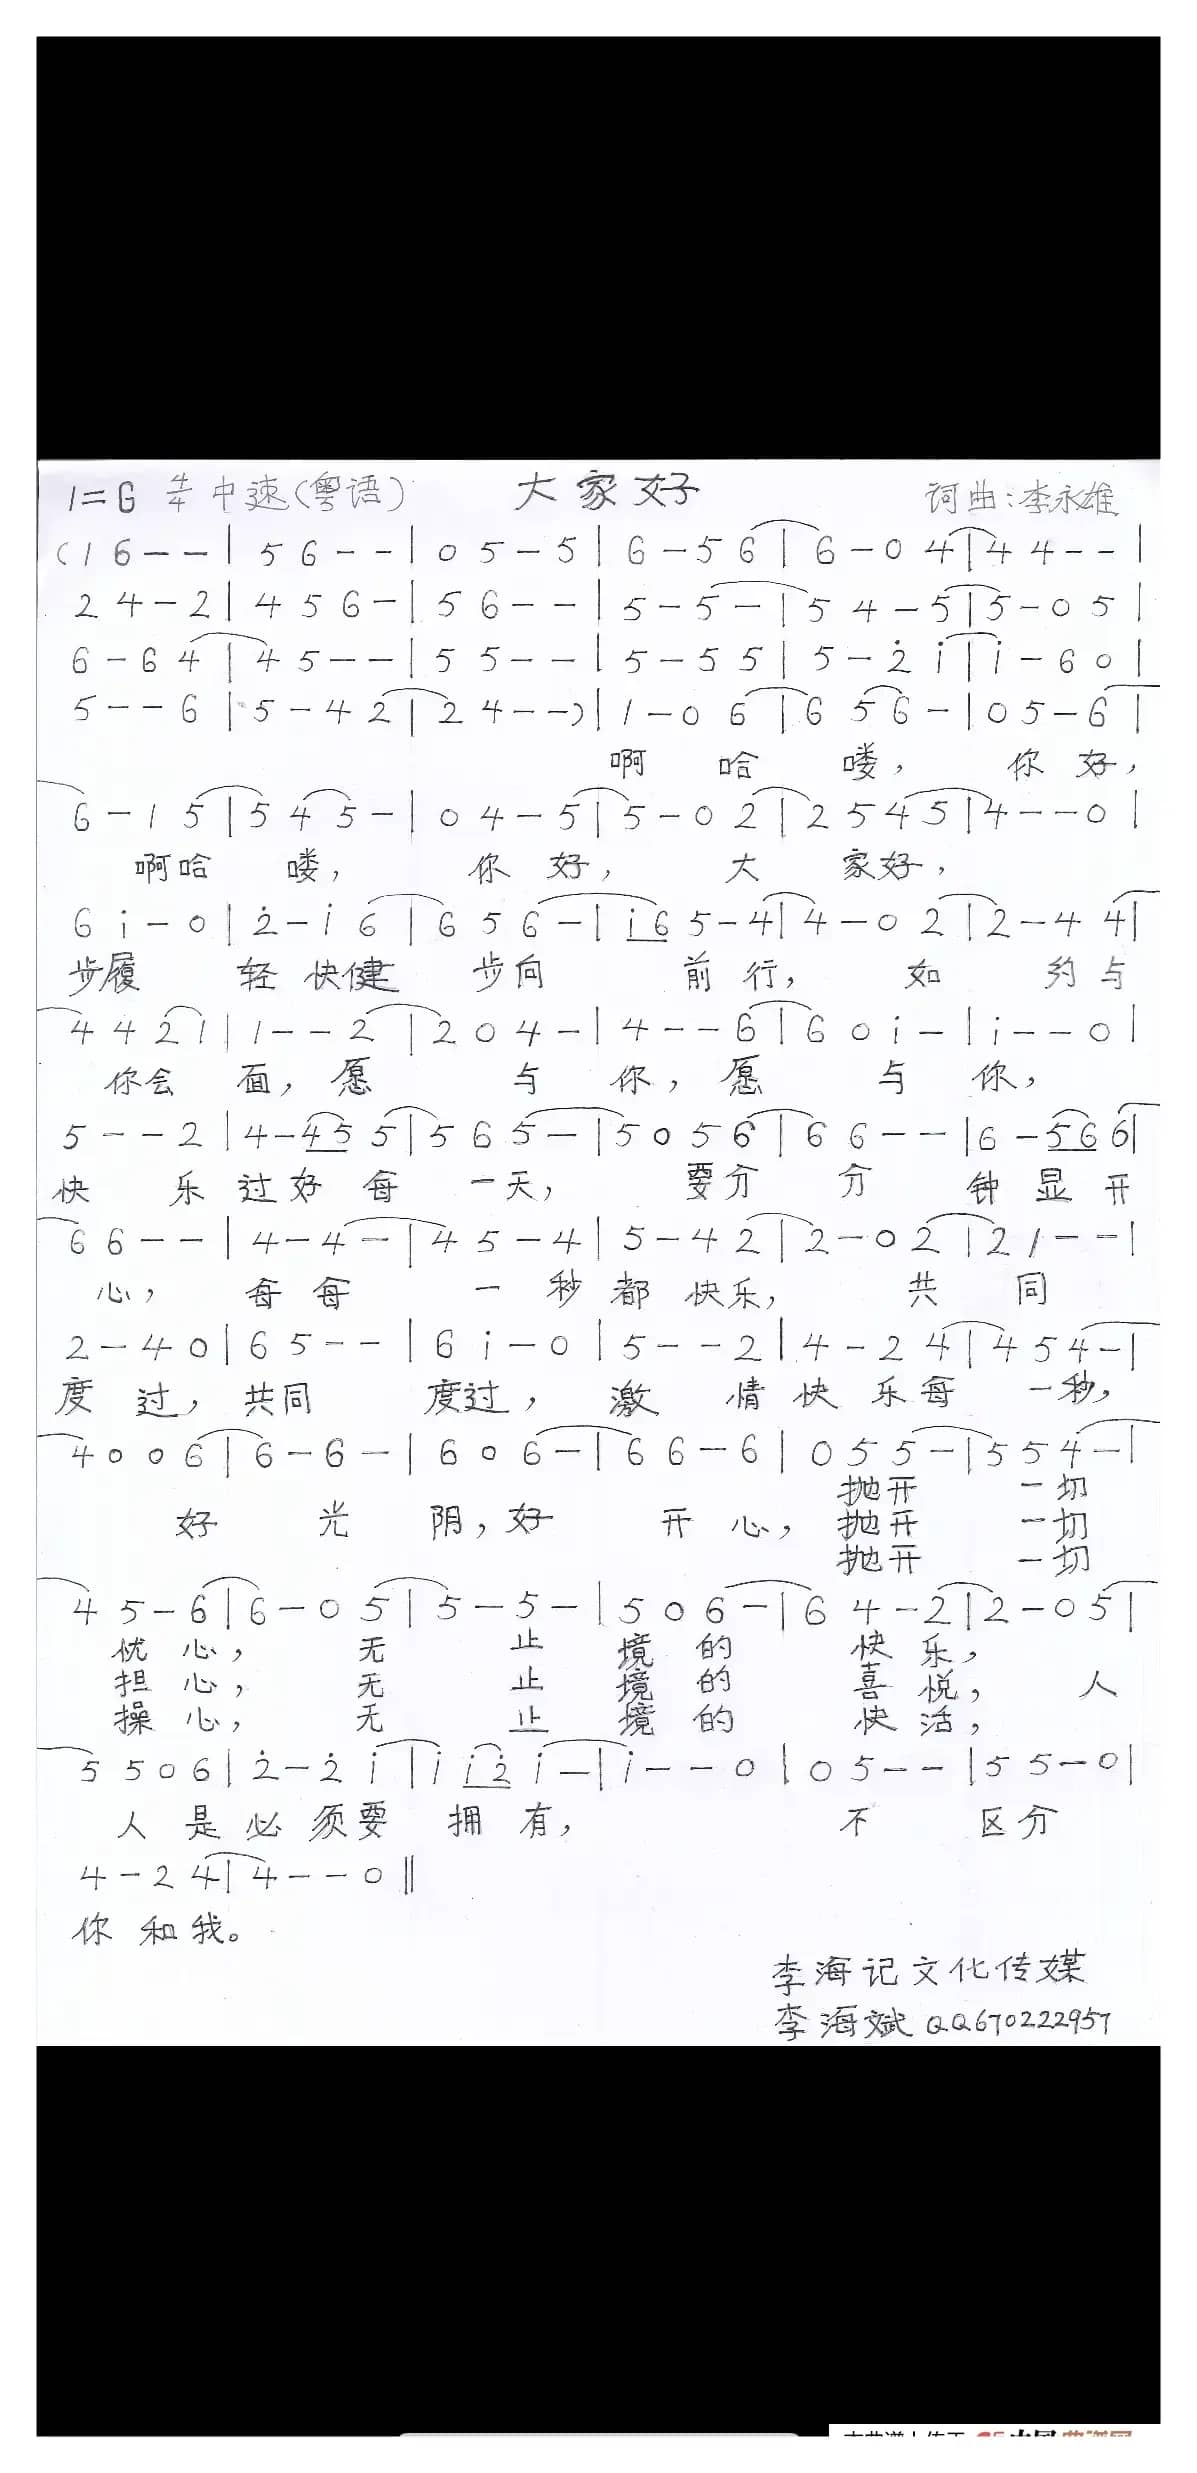 1=G 4/4 中速(粤语) 大家好 词曲:李永雄
(1 6 - - | 5 6 - - | 0 5 - 5 | 6 - 5 6 | 6 - 0 4 | 4 4 - - |
2 4 - 2 | 4 5 6 - | 5 6 - - | 5 - 5 - | 5 4 - 5 | 5 - 0 5 |
6 - 6 4 | 4 5 - - | 5 5 - - | 5 - 5 5 | 5 - 2̇ i | i - 6 0 |
5 - - 6 | 5 - 4 2 | 2 4 - -) | 1 - 0 6 | 6 5 6 - | 0 5 - 6 |
啊 哈 喽, 你 好,
6 - 1 5 | 5 4 5 - | 0 4 - 5 | 5 - 0 2 | 2 5 4 5 | 4 - - 0 |
啊哈 喽, 你 好, 大 家好,
6 i - 0 | 2̇ - i 6 | 6 5 6 - | i6 5 - 4 | 4 - 0 2 | 2 - 4 4 |
步履 轻 快健 步向 前行, 如 约与
4 4 2 1 | 1 - - 2 | 2 0 4 - | 4 - - 6 | 6 0 i - | i - - 0 |
你会 面,愿 与 你,愿 与 你,
5 - - 2 | 4 - 45 5 | 5 6 5 - | 5 0 5 6 | 6 6 - - | 6 - 56 6 |
快 乐 过好 每 一天, 要分 分 钟 显 开
6 6 - - | 4 - 4 - | 4 5 - 4 | 5 - 4 2 | 2 - 0 2 | 2 1 - - |
心, 每每 一 秒 都 快乐, 共 同
2 - 4 0 | 6 5 - - | 6 i - 0 | 5 - - 2 | 4 - 2 4 | 4 5 4 - |
度 过,共同 度过, 激 情 快 乐每 一秒,
4 0 0 6 | 6 - 6 - | 6 0 6 - | 6 6 - 6 | 0 5 5 - | 5 5 4 - |
抛开 一切
好 光 阴,好 开 心, 抛开 一切
抛开 一切
4 5 - 6 | 6 - 0 5 | 5 - 5 - | 5 0 6 - | 6 4 - 2 | 2 - 0 5 |
忧 心, 无 止 境 的 快 乐,
担 心, 无 止 境 的 喜 悦, 人
操 心, 无 止 境 的 快 活,
5 5 0 6 | 2̇ - 2̇ i | i i2̇ i - | i - - 0 | 0 5 - - | 5 5 - 0 |
人 是 必 须要 拥 有, 不 区分
4 - 2 4 | 4 - - 0 ‖
你 和我。
李海记文化传媒
李海斌QQ670222957